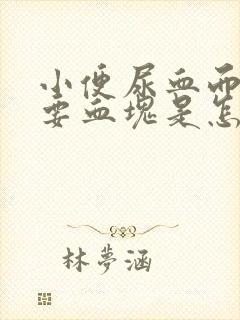 小便尿血而
要血塊是怎
林夢涵